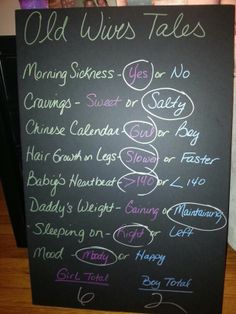 Old Wives Tales
Morning Sickness - Yes or No
Cravings - Sweet or Salty
Chinese Calendar - Girl or Boy
Hair Growth on Legs - Slower or Faster
Baby's Heartbeat - >140 or <140
Daddy's Weight - Gaining or Maintaining
Sleeping on - Right or Left
Mood - Moody or Happy
Girl Total Boy Total
6 2